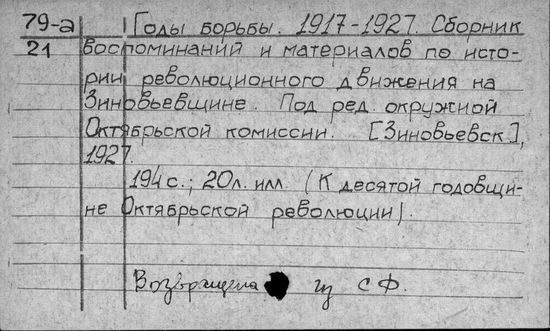 79-а Годы борьбы. 1917-1927. Сборник
21 воспоминаний и материалов по исто-
рии революционного движения на
Зиновьевщине. Под ред. окружной
Октябрьской комиссии. [Зиновьевск],
1927.
194 с.; 20 л. илл. (К десятой годовщи-
не Октябрьской революции).
Возвращена из СФ.